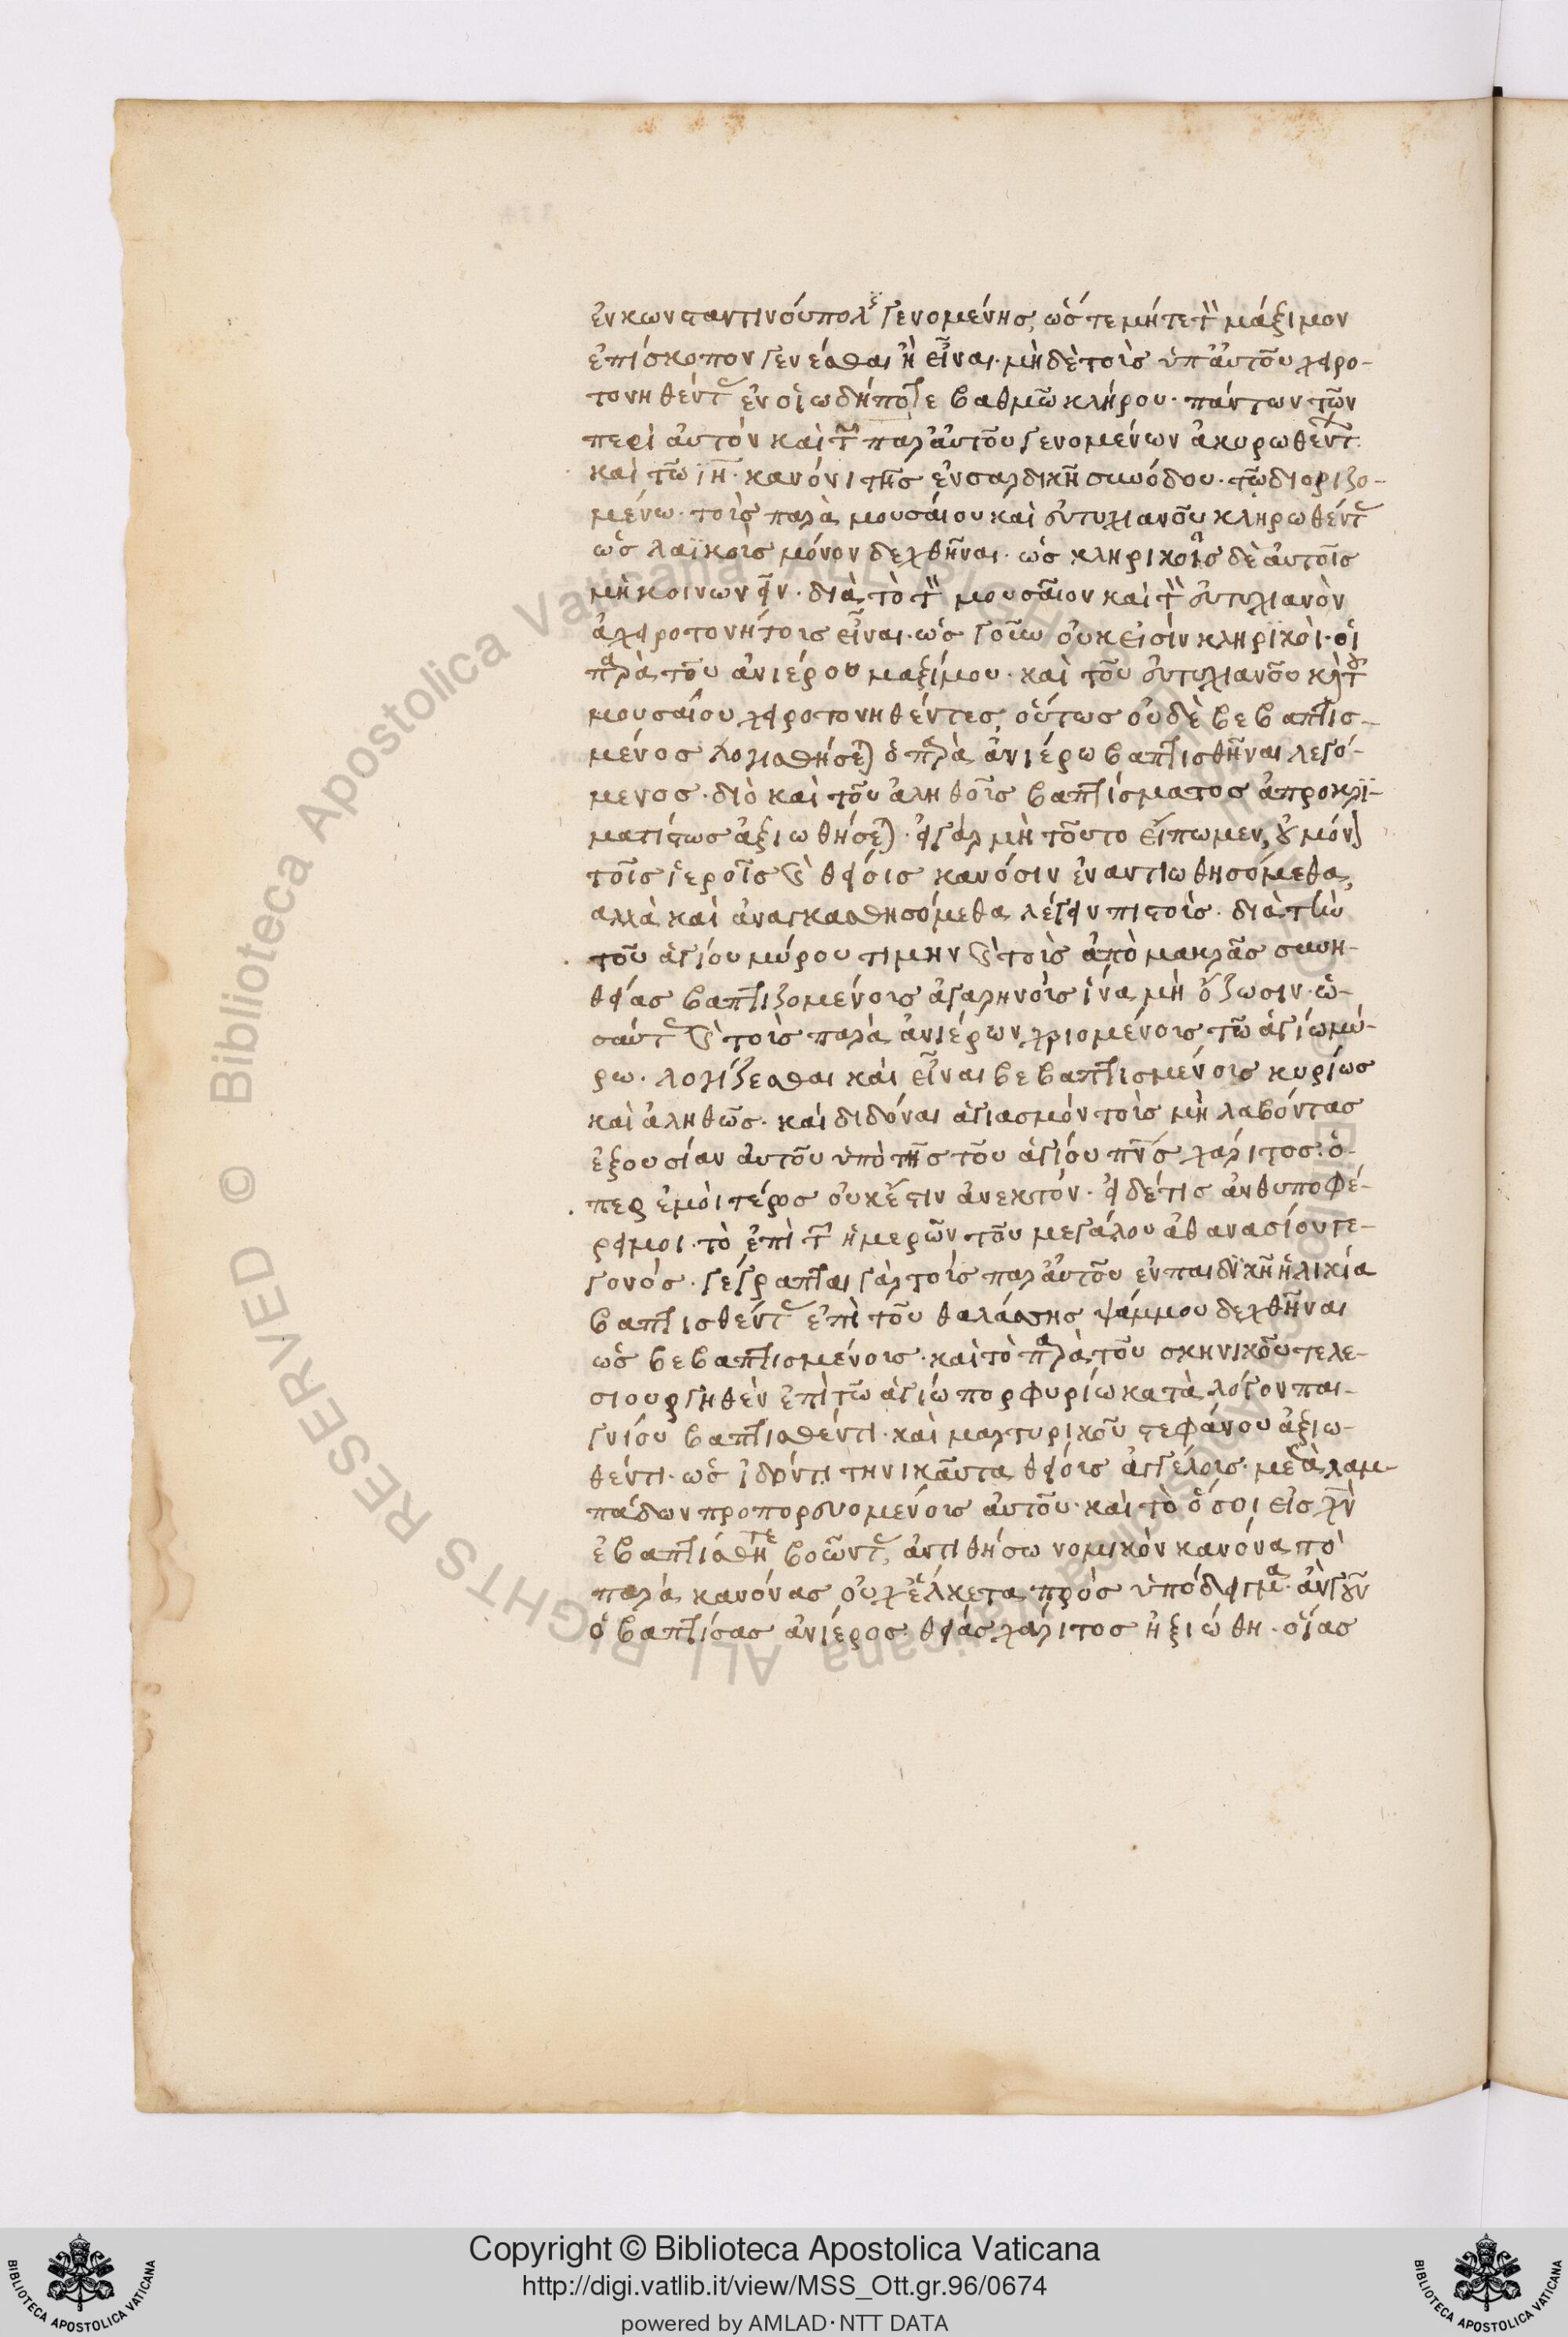 ἐν κωνσταντινουπόλει γενομένης, ὥστε μήτε τὸν μάξιμον
ἐπίσκοπον γενέσθαι ἢ εἶναι· μὴ δὲ τοὺς ὑπ' αὐτοῦ χειρο-
τονηθέντας ἐν οἱωδήποτε βαθμῶ κλήρου· πάντων τῶν
περὶ αὐτὸν καὶ τῶν παρ' αὐτοῦ γενομένων ἀκυρωθέντων·
καὶ τῶ ιη· κανόνι τῆς ἐν σαρδικῆ συνόδου· τῶ διοριζο-
μένω· τοὺς παρὰ μουσαίου καὶ εὐτυχιανοῦ κληρωθέντας
ὡς λαϊκοὺς μόνον δεχθῆναι· ὡς κληρικοῖς δὲ αὐτοῖς
μὴ κοινωνεῖν· διὰ τὸ τὸν μουσαῖον καὶ τὸν εὐτυχιανὸν
ἀχειροτονήτους εἶναι· ὡς γοῦν οὐκ εἰσὶν κληρικοὶ· οἱ
παρὰ τοῦ ἀνιέρου μαξίμου· καὶ τοῦ εὐτυχιανοῦ καὶ τοῦ
μουσαίου χειροτονηθέντες, οὕτως οὐδὲ βεβαπτισ-
μένος λογισθήσεται ὁ παρὰ ἀνιέρω βαπτισθῆναι λεγό-
μενος· διὸ καὶ τοῦ ἀληθοῦς βαπτίσματος ἀπροκρι-
ματίστως ἀξιωθήσεται· εἰ γὰρ μὴ τοῦτο εἴπωμεν, οὐ μόνον
τοῖς ἱεροῖς καὶ θείοις κανόσιν ἐναντιωθησόμεθα,
αλλὰ καὶ ἀναγκασθησόμεθα λέγειν πιστοὺς· διὰ τὴν
τοῦ ἁγίου μύρου τιμην καὶ τοὺς ἀπὸ μακρᾶς συνη-
θείας βαπτιζομένους ἀγαρηνοὺς ἵνα μὴ ὄζωσιν· ὡ-
σαύτως καὶ τοὺς παρὰ ἀνιέρων χριομένους τῶ ἁγίω μύ-
ρω· λογίζεσθαι καὶ εἶναι βεβαπτισμένους κυρίως
καὶ ἀληθῶς· καὶ διδόναι ἁγιασμὸν τοὺς μὴ λαβόντας
ἐξουσίαν αὐτοῦ ὑπὸ τῆς τοῦ ἁγίου πνς χάριτος· ὅ-
περ ἐμοὶ τέως οὐκ ἔστιν ἀνεκτόν· εἰ δέ τις ἀνθυποφέ-
ρει μοι· τὸ ἐπὶ τῶν ἡμερῶν τοῦ μεγάλου ἀθανασίου γε-
γονός· γέγραπται γὰρ τοὺς παρ' αὐτοῦ ἐν παιδικῆ ἡλικία
βαπτισθέντας ἐπὶ τοῦ θαλάσσης ψάμμου δεχθῆναι
ὡς βεβαπτισμένους· καὶ τὸ παρὰ τοῦ σκηνικοῦ τελε-
σιουργηθὲν ἐπὶ τῶ ἁγίω πορφυρίω κατὰ λόγον παι-
γνίου βαπτισθέντι· καὶ μαρτυρικοῦ στεφάνου ἀξιω-
θέντι· ὡς ἰδόντι τηνικαῦτα θείους ἀγγέλους· μετὰ λαμ-
πάδων προπορευομένους αὐτοῦ· καὶ τὸ ὅσοι εἰς χν
ἐβαπτίσθητε βοῶντας, ἀντιθήσω νομικὸν κανόνα τὸ
παρὰ κανόνας οὐχ ἕλκεται πρὸς ὑπόδειγμα· ἂν γοῦν
ὁ βαπτίσας ἀνίερος θείας χάριτος ἠξιώθη· οἵας
Copyright © Biblioteca Apostolica Vaticana
http://digi.vatlib.it/view/MSS_Ott.gr.96/0674
powered by AMLAD·NTT DATA
BIBLIOTECA APOSTOLICA VATICANA
BIBLIOTECA APOSTOLICA VATICANA